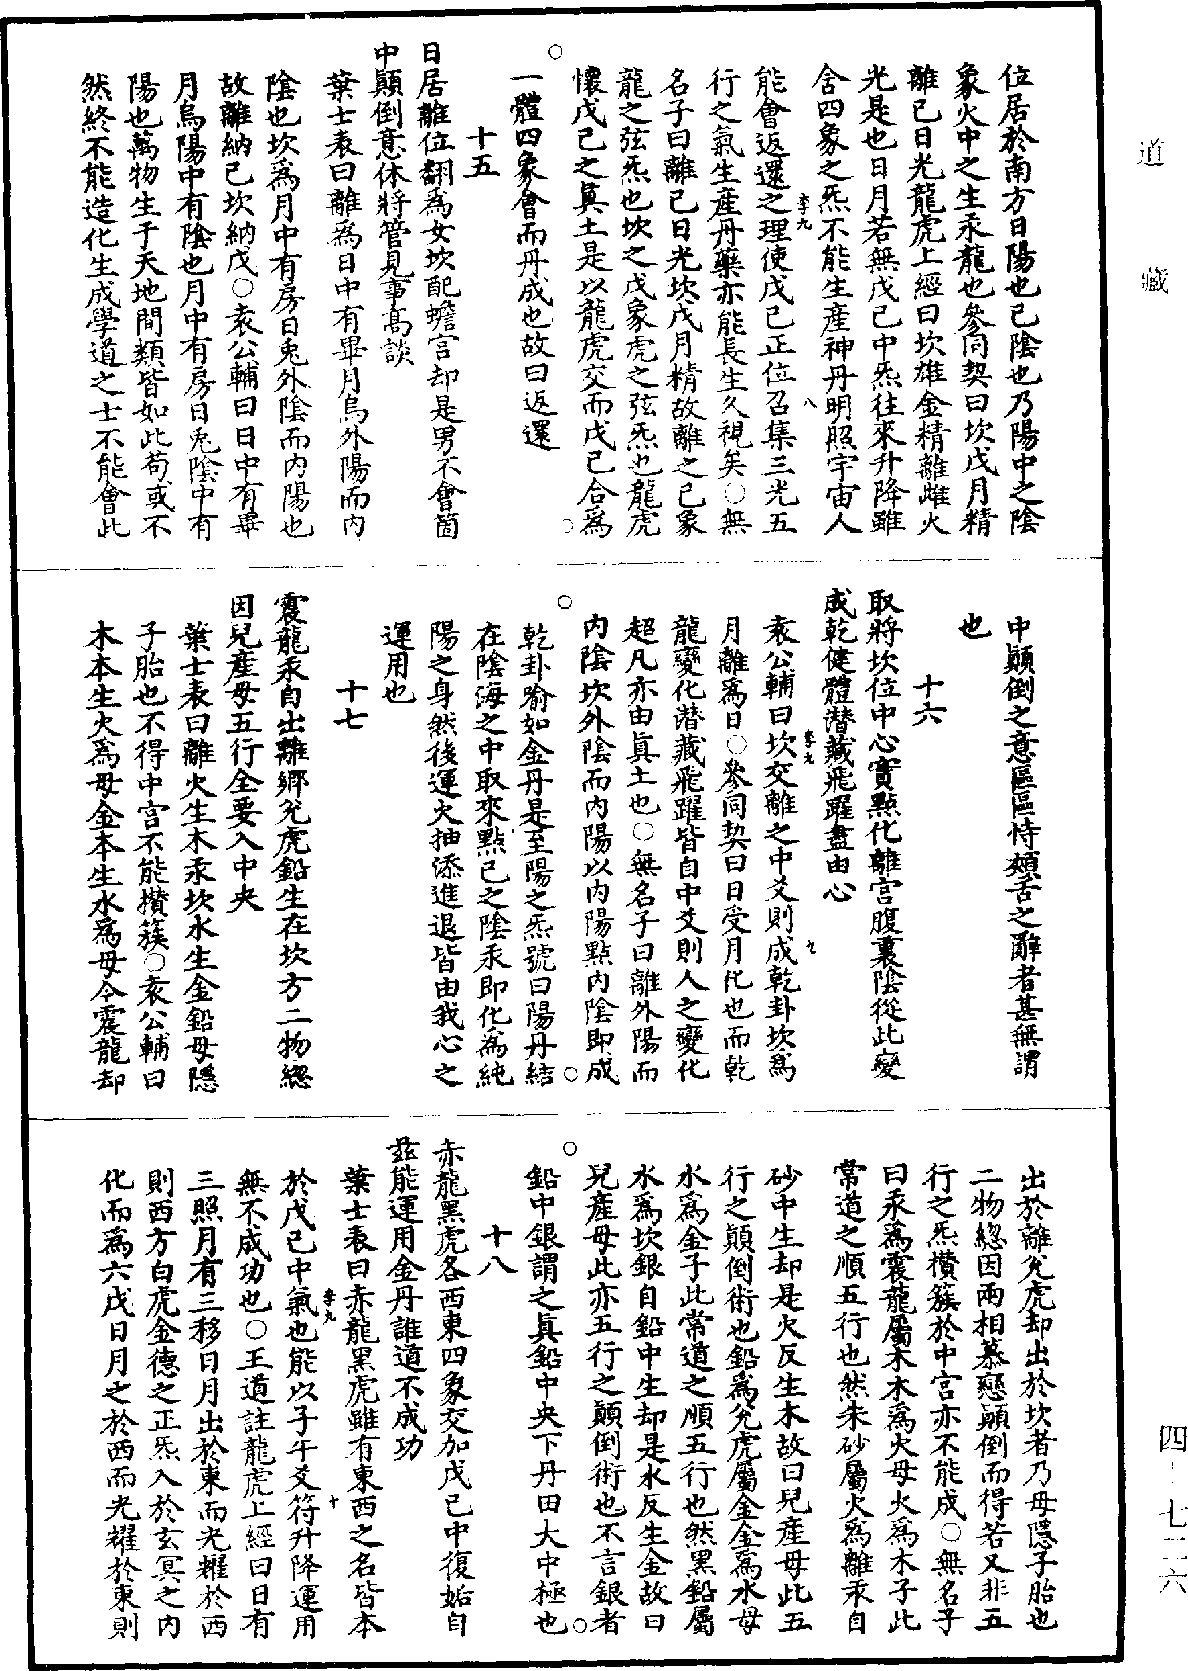 道藏
位居於南方日陽也已陰也乃陽中之陰
象火中之生汞龍也參同契曰坎戊月精
離已日光龍虎上經曰坎雄金精離雌火
光是也日月若無戊己中炁往來升降雖
含四象之炁不能生產神丹明照宇宙人
能會返還之理使戊己正位召集三光五
行之氣生產丹藥亦能長生久視矣○無
名子曰離已日光坎戊月精故離之已象
龍之弦炁也坎之戊象虎之弦炁也龍虎
懷戊已之真土是以龍虎交而戊已合爲
一體四象會而丹成也故曰返還
十五
日居離位翻爲女坎配蟾宮却是男不會箇
中顛倒意休將管見事高談
葉士表曰離為日中有畢月烏外陽而内
陰也坎爲月中有房日兎外陰而内陽也
故離納已坎納戊○袁公輔曰日中有畢
月烏陽中有陰也月中有房日兎陰中有
陽也萬物生于天地間類皆如此苟或不
然終不能造化生成學道之士不能會此
中顛倒之意區區恃頰舌之辭者甚無謂
也
十六
取將坎位中心實點化離宮腹裏陰從此變
成乾健體潜藏飛躍盡由心
袁公輔曰坎交離之中爻則成乾卦坎爲
月離爲日○參同契曰日受月化也而乾
龍變化潜藏飛躍皆自中爻則人之變化
超凡亦由真土也○無名子曰離外陽而
内陰坎外陰而内陽以内陽點内陰即成
乾卦喻如金丹是至陽之炁號曰陽丹結
在陰海之中取來點已之陰汞即化爲純
陽之身然後運火抽添進退皆由我心之
運用也
十七
震龍汞自出離鄉兊虎鉛生在坎方二物緫
因兒產母五行全要入中央
葉士表曰離火生木汞坎水生金鉛母隱
子胎也不得中宮不能攢簇○袁公輔曰
木本生火爲母金本生水爲母今震龍却
出於離兊虎却出於坎者乃母隱子胎也
二物緫因兩相慕戀顛倒而得若又非五
行之炁攢簇於中宮亦不能成○無名子
曰汞爲震龍屬木木爲火母火爲木子此
常道之順五行也然朱砂屬火爲離汞自
砂中生却是火反生木故曰兒產母此五
行之顛倒術也鉛爲兊虎屬金金爲水母
水爲金子此常道之順五行也然黑鉛屬
水爲坎銀自鉛中生却是水反生金故曰
兒產母此亦五行之顛倒術也不言銀者
鉛中銀謂之真鉛中央下丹田大中極也
十八
赤龍黑虎各西東四象交加戊已中復姤自
茲能運用金丹誰道不成功
葉士表曰赤龍黑虎雖有東西之名皆本
於戊已中氣也能以子午爻符升降運用
無不成功也○王道註龍虎上經曰日有
三照月有三移日月出於東而光耀於西
則西方白虎金德之正炁入於玄冥之内
化而爲六戊日月之於西而光耀於東則
李九
八
李九
九
李九
十
四-七二六